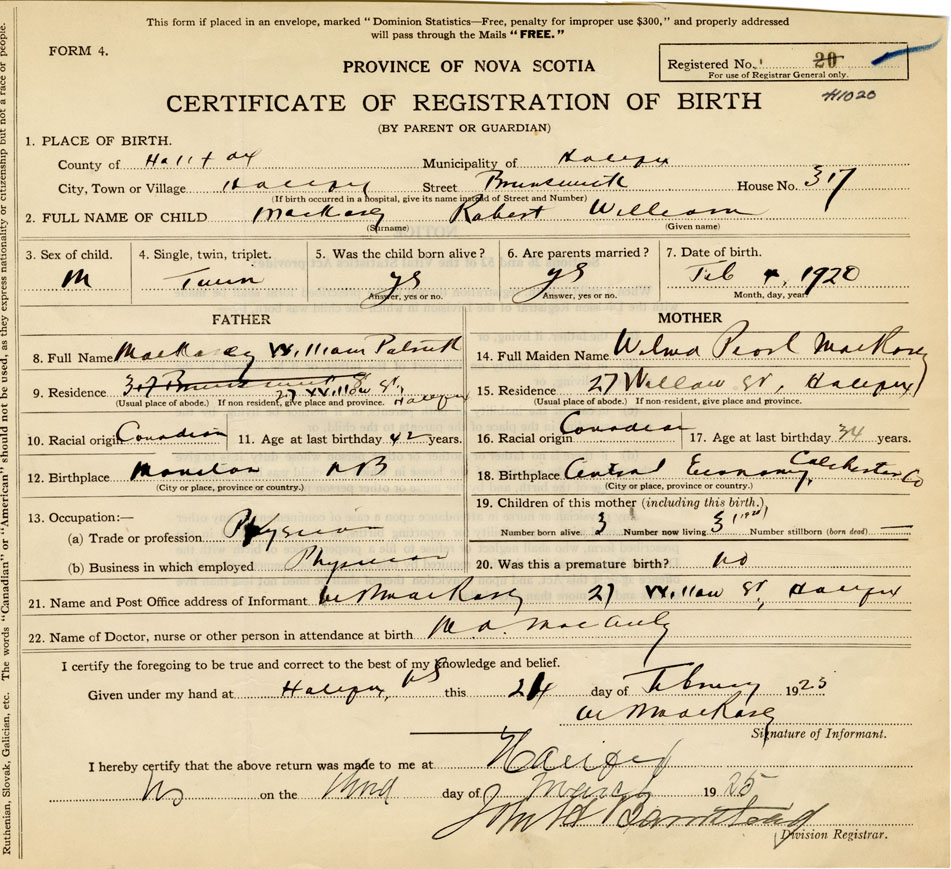 This form if placed in an envelope, marked "Dominion Statistics—Free, penalty for improper use $300," and properly addressed
will pass through the Mails "FREE."
FORM 4.
PROVINCE OF NOVA SCOTIA
Registered No. 20
For use of Registrar General only.
41020
CERTIFICATE OF REGISTRATION OF BIRTH
(BY PARENT OR GUARDIAN)
1. PLACE OF BIRTH.
County of Halifax Municipality of Halifax
City, Town or Village Halifax Street Brunswick House No. 317
(If birth occurred in a hospital, give its name instead of Street and Number)
2. FULL NAME OF CHILD MacKasey Robert William
(Surname) (Given name)
3. Sex of child. 4. Single, twin, triplet. 5. Was the child born alive? 6. Are parents married? 7. Date of birth.
M Twin yes yes Feb 4, 1920
Answer, yes or no. Answer, yes or no. Month, day, year
FATHER MOTHER
8. Full Name MacKasey William Patrick
9. Residence 317 Brunswick St
27 Willow St, Halifax
(Usual place of abode.) If non resident, give place and province.
10. Racial origin Canadian 11. Age at last birthday 42 years.
12. Birthplace Moncton NB
(City or place, province or country.)
13. Occupation:—
(a) Trade or profession Physician
(b) Business in which employed Physician
14. Full Maiden Name Wilma Pearl MacKasey
15. Residence 27 Willow St, Halifax
(Usual place of abode.) If non-resident, give place and province.
16. Racial origin Canadian 17. Age at last birthday 34 years.
18. Birthplace Central Economy, Colchester Co
(City or place, province or country.)
19. Children of this mother (including this birth.)
Number born alive 3 Number now living 3 Number stillborn (born dead) —
20. Was this a premature birth? no
21. Name and Post Office address of Informant W MacKasey 27 Willow St, Halifax
22. Name of Doctor, nurse or other person in attendance at birth M.A. MacAuly
I certify the foregoing to be true and correct to the best of my knowledge and belief.
Given under my hand at Halifax, NS this 24 day of February 1925
W MacKasey
Signature of Informant.
I hereby certify that the above return was made to me at Halifax
NS on the third day of March 1925
John H Barnstead
Division Registrar.
Ruthenian, Slovak, Galician, etc. The words "Canadian" or "American" should not be used, as they express nationality or citizenship but not a race or people.